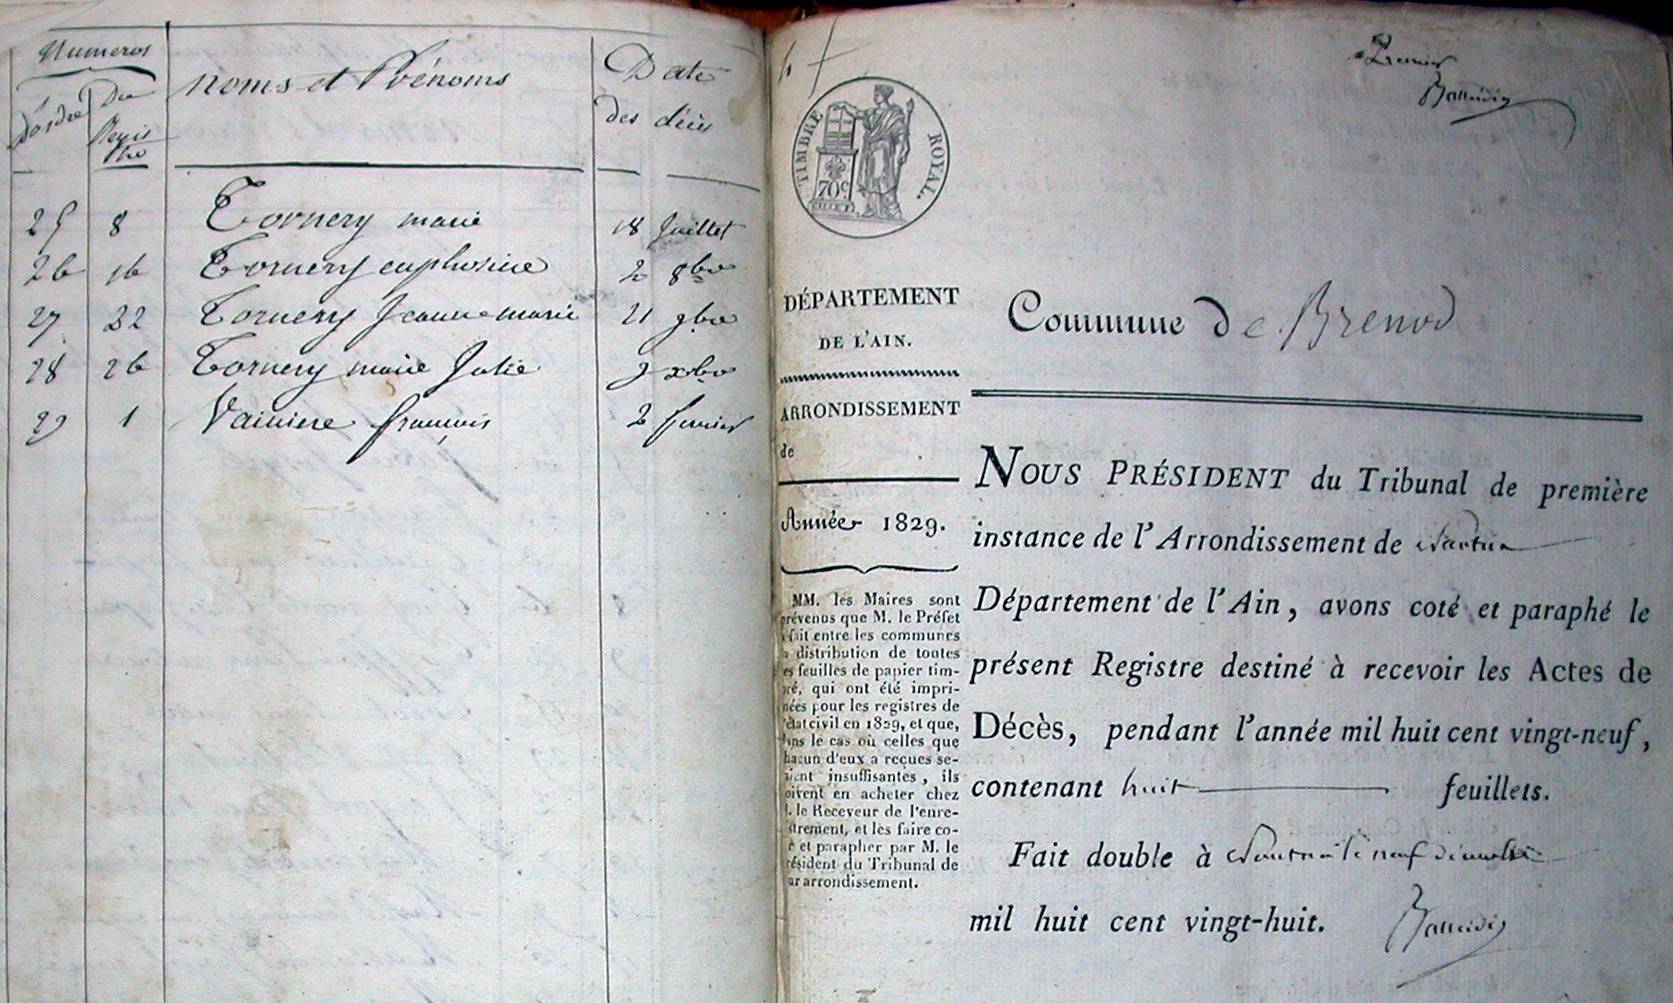 Numeros
noms et Prénoms
Date
d'ordre
Du
Regis
tre
des décès
25 8 Tornery marie 18 Juillet
26 16 Tornery euphrosine 2 8bre
27 22 Tornery Jeanne marie 21 9bre
28 26 Tornery marie Julie 9 xbre
29 1 Vainiere françois 2 fevrier
Premier
TIMBRE ROYAL.
70c
DÉPARTEMENT
DE L'AIN.
ARRONDISSEMENT
de
Année 1829.
MM. les Maires sont
prévenus que M. le Préfet
fait entre les communes
distribution de toutes
es feuilles de papier tim-
ré, qui ont été impri-
mées pour les registres de
l'état civil en 1829, et que,
ans le cas où celles que
hacun d'eux a reçues se-
aient insuffisantes, ils
oivent en acheter chez
M. le Receveur de l'enre-
strement, et les faire co-
r et parapher par M. le
résident du Tribunal de
ur arrondissement.
Commune de Brenod
NOUS PRÉSIDENT du Tribunal de première
instance de l'Arrondissement de Nantua
Département de l'Ain, avons coté et paraphé le
présent Registre destiné à recevoir les Actes de
Décès, pendant l'année mil huit cent vingt-neuf,
contenant huit feuillets.
Fait double à Nantua le neuf décembre
mil huit cent vingt-huit.